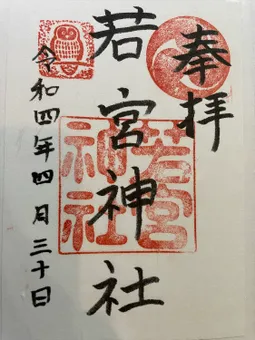 奉拝
若宮神社
令和四年四月三十日
若宮
神社